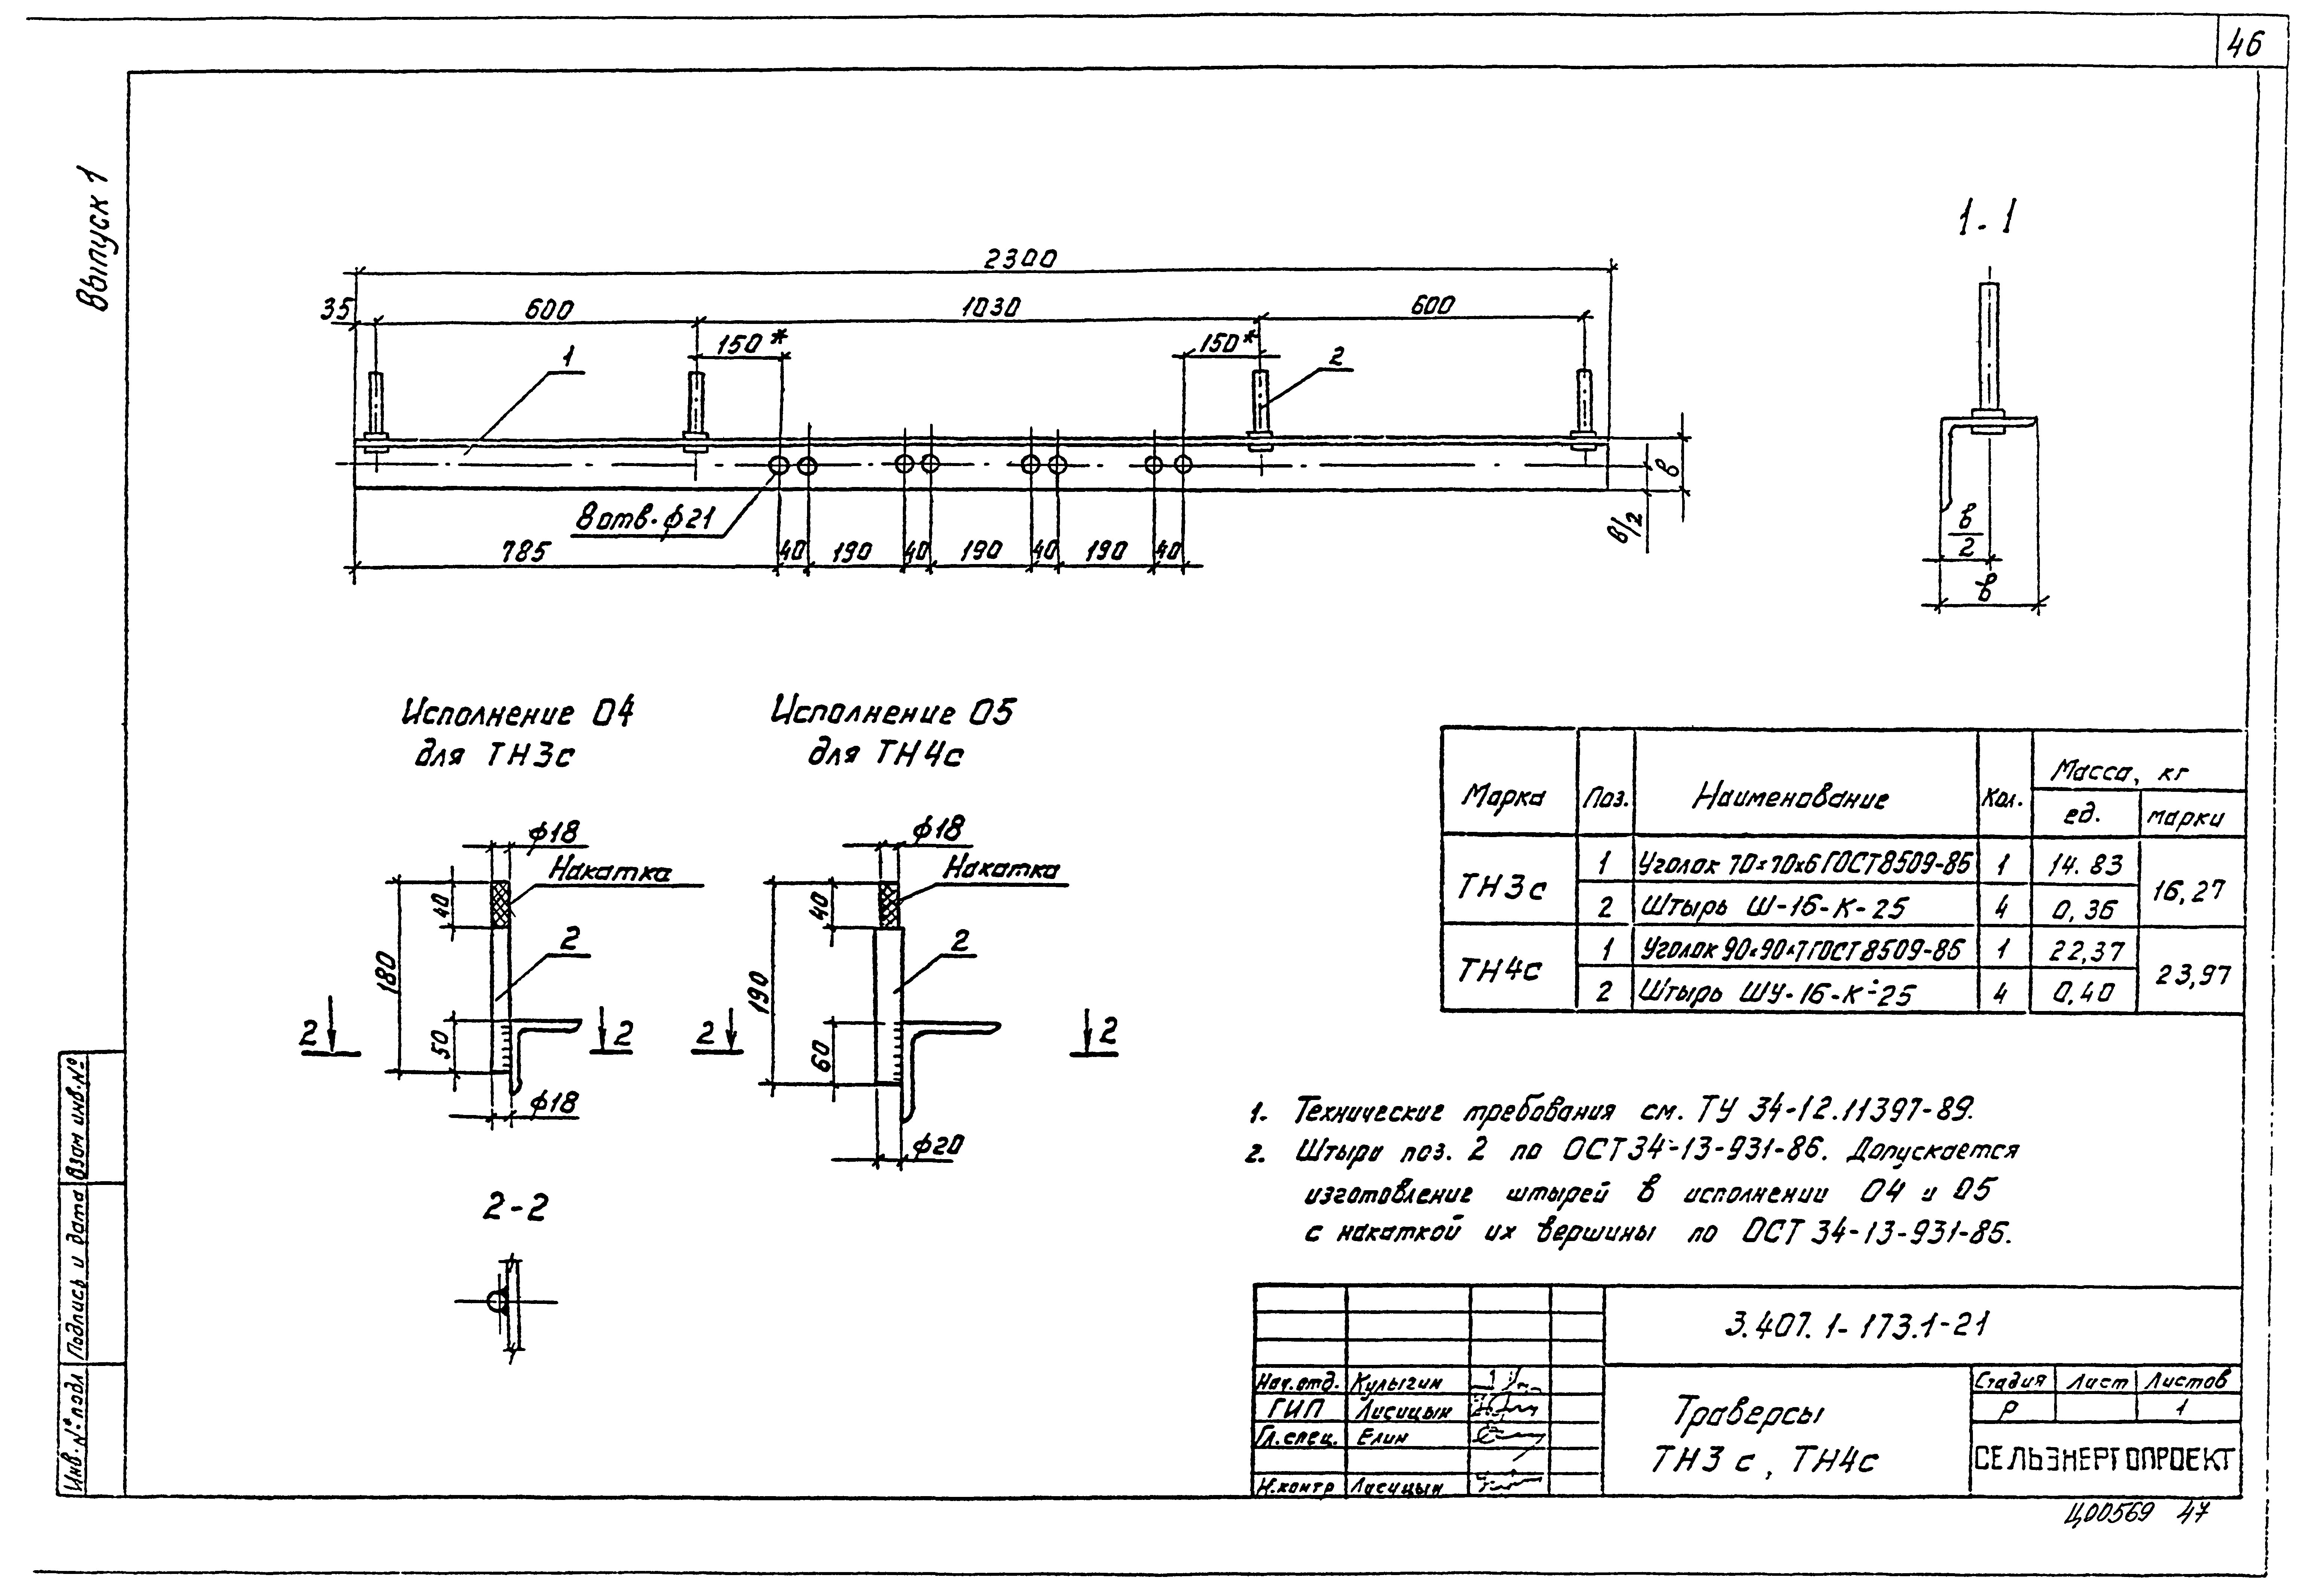 46
Выпуск 1
1-1
2300
35 600 1030 600
150* 150*
1 2
8 отв. ф21
785 40 190 40 190 40 190 40
в/2 в
в/2
в
Исполнение 04
для ТН3с
Исполнение 05
для ТН4с
ф18
Накатка
40
180
50
2
2 2
ф18
ф18
Накатка
40
190
60
2
2 2
ф20
2-2
Марка Поз. Наименование Кол. Масса, кг
ед. марки
ТН3с 1 Уголок 70х70х6 ГОСТ 8509-86 1 14.83 16,27
2 Штырь Ш-16-К-25 4 0,36
ТН4с 1 Уголок 90х90х7 ГОСТ 8509-86 1 22,37 23,97
2 Штырь ШУ-16-К-25 4 0,40
1. Технические требования см. ТУ 34-12.11397-89.
2. Штыри поз. 2 по ОСТ 34-13-931-86. Допускается
изготовление штырей в исполнении 04 и 05
с накаткой их вершины по ОСТ 34-13-931-86.
3.407.1-173.1-21
Нач.отд. Кулыгин
ГИП Лисицын
Гл.спец. Елин
Н.контр Лисицын
Траверсы
ТН3с, ТН4с
Стадия Лист Листов
Р 1
СЕЛЬЭНЕРГОПРОЕКТ
Инв. № подл Подпись и дата Взам инв. №
Ц00569 47